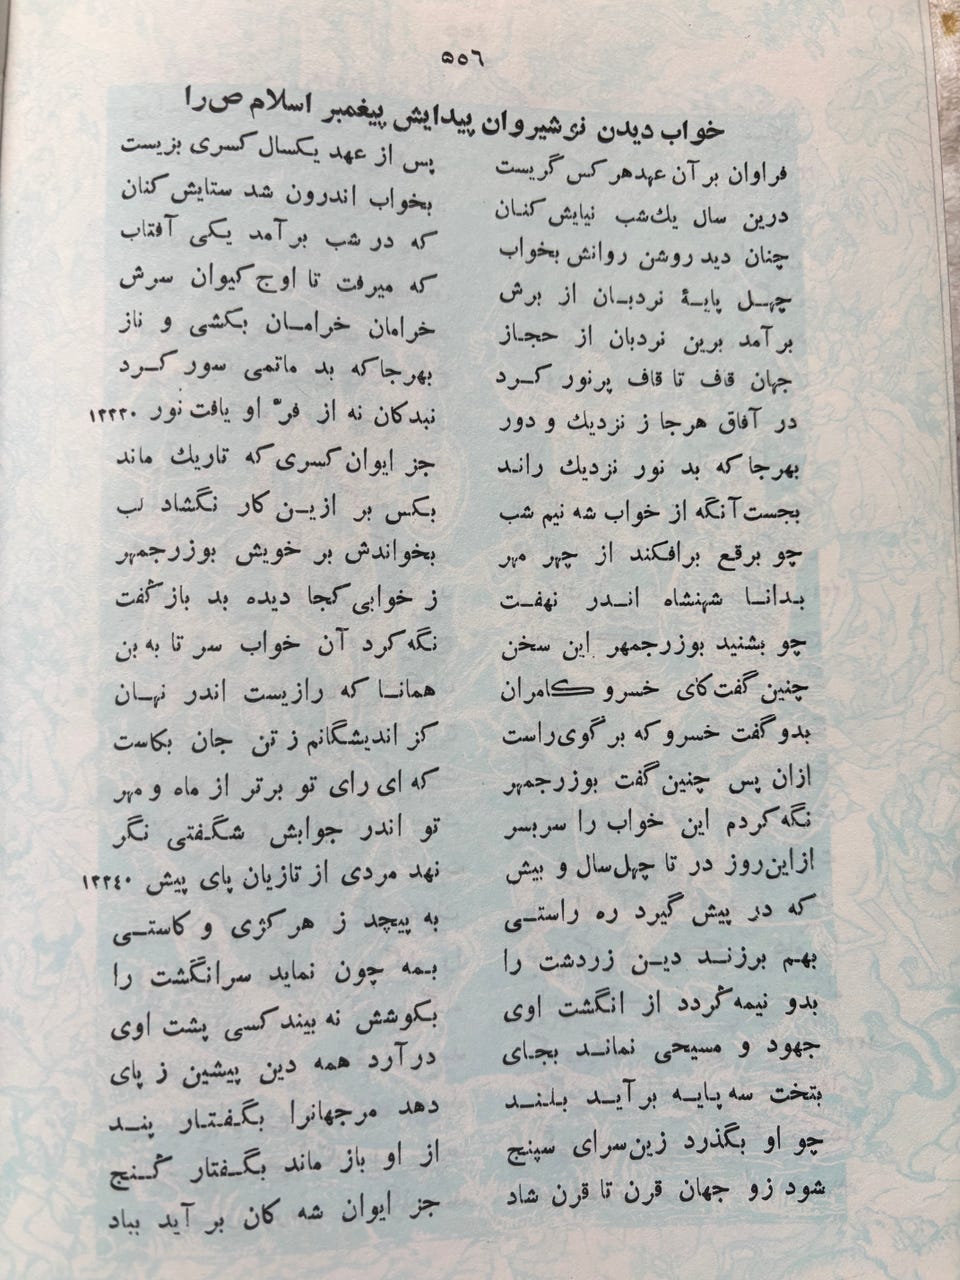 ۵۵۶
خواب دیدن نوشیروان پیدایش پیغمبر اسلام ص را
فراوان بر آن عهد هر کس گریست پس از عهد یکسال کسری بزیست
درین سال یك‌شب نیایش کنان بخواب اندرون شد ستایش کنان
چنان دید روشن روانش بخواب که در شب برآمد یکی آفتاب
چهل پایهٔ نردبان از برش که میرفت تا اوج کیوان سرش
برآمد برین نردبان از حجاز خرامان خرامان بکشی و ناز
جهان قاف تا قاف پرنور کرد بهرجا که بد ماتمی سور کرد
در آفاق هرجا ز نزدیك و دور نبدکان نه از فرّ او یافت نور ۱۲۲۳۰
بهرجا که بد نور نزدیك راند جز ایوان کسری که تاریك ماند
بجست آنگه از خواب شه نیم شب بکس بر ازین کار نگشاد لب
چو برقع برافکند از چهر مهر بخواندش بر خویش بوزرجمهر
بدانا شهنشاه اندر نهفت ز خوابی کجا دیده بد باز گفت
چو بشنید بوزرجمهر این سخن نگه کرد آن خواب سر تا به بن
چنین گفت کای خسرو کامران همانا که رازیست اندر نهان
بدو گفت خسرو که بر گوی راست کز اندیشگانم ز تن جان بکاست
ازان پس چنین گفت بوزرجمهر که ای رای تو برتر از ماه و مهر
نگه کردم این خواب را سربسر تو اندر جوابش شگفتی نگر
ازاین‌روز در تا چهل‌سال و بیش نهد مردی از تازیان پای پیش ۱۲۲۴۰
که در پیش گیرد ره راستی به پیچد ز هر کژی و کاستی
بهم برزند دین زردشت را بمه چون نماید سرانگشت را
بدو نیمه گردد از انگشت اوی بکوشش نه بیند کسی پشت اوی
جهود و مسیحی نماند بجای در آرد همه دین پیشین ز پای
بتخت سه پایه بر آید بلند دهد مرجهانرا بگفتار پند
چو او بگذرد زین سرای سپنج از او باز ماند بگفتار گنج
شود زو جهان قرن تا قرن شاد جز ایوان شه کان بر آید بباد